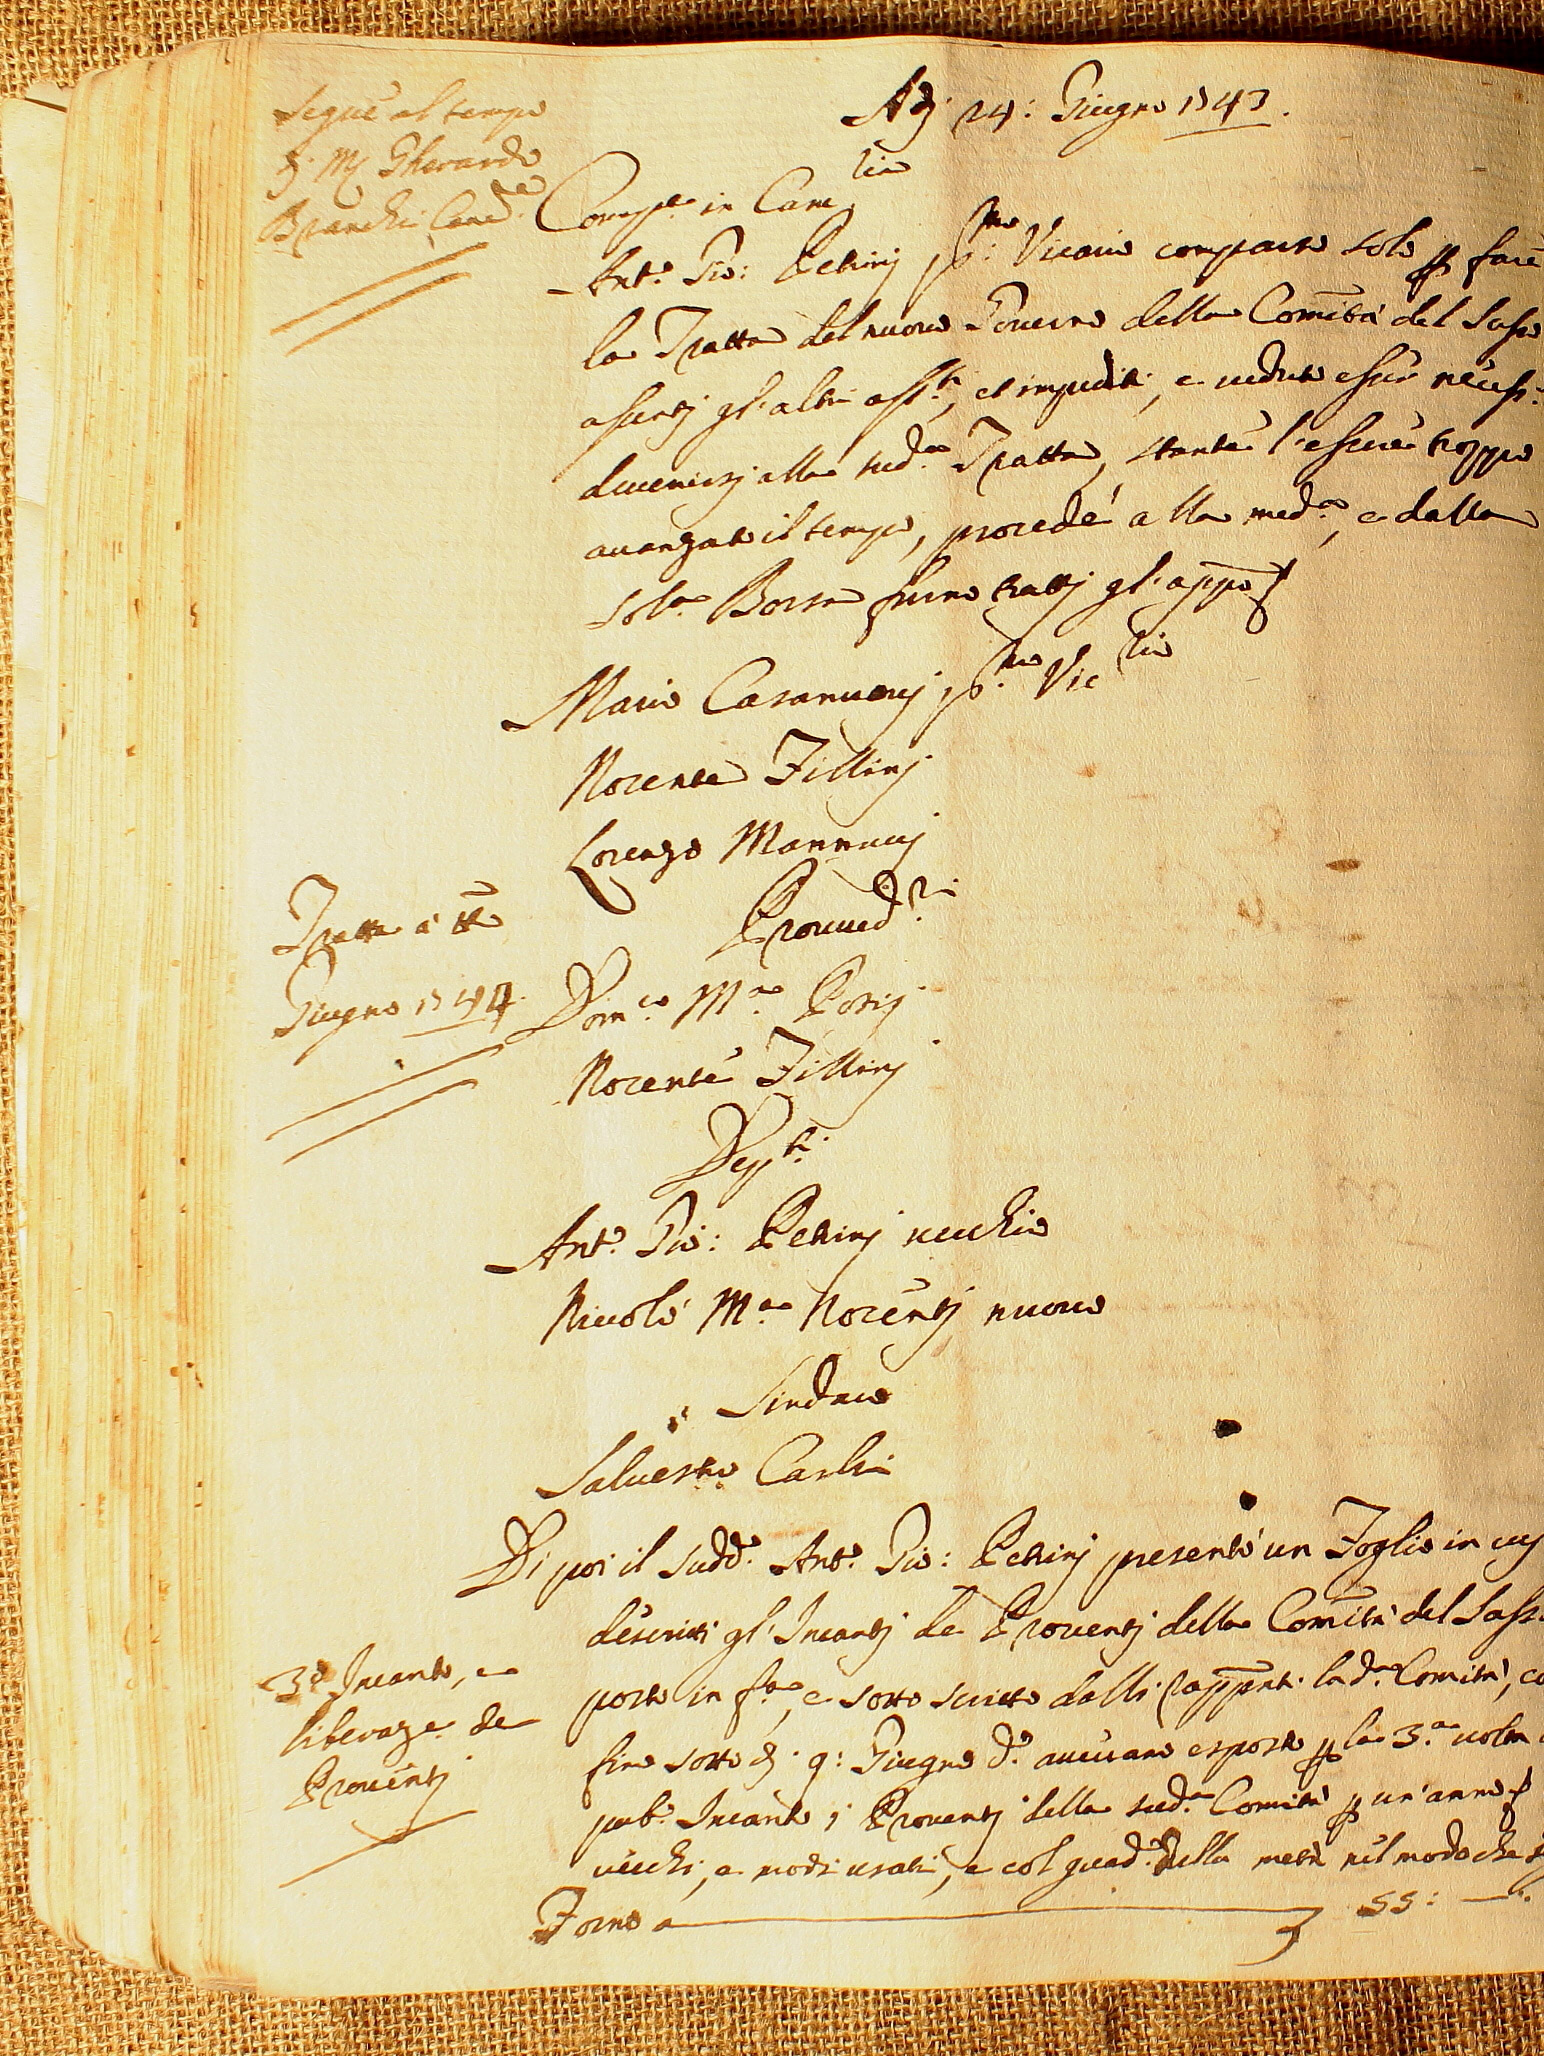 Segue al tempo
di Mr Gherardo
Bianchi Canc.re
Adì 24: Giugno 1743.
Comp.e in Canc.ria
Ant.o Gio: Petrinj p.mo Vicario comparso solo p fare
la Tratta del nuovo Governo della Comità del Sasso
assentj gl'altri ass.ti, et impediti, e veduto essere necess:
divenirsj alla sud.a Tratta, stante l'essere troppo
avanzato il tempo, procedé alla med.a, e dalla
sol.a Borsa furno trattj gl'appo
Mario Casanuovj p.mo Vic.rio
Norente Fillinj
Lorenzo Mannucj
Proved.ri
Dom.co M.a Posij
Norente Fillinj
Dep.ti
Ant.o Gio: Petrinj vecchio
Niccolò M.a Norentj nuovo
Sindaco
Salvestro Carli
Tratta a tto
Giugno 1744.
Di poi il sudd.o Ant.o Gio: Petrinj presentò un Foglio in cuj
descritti gl'Incantj de Proventj della Comità del Sass
poste in f.a, e sotto scritto dalli rapp̃nti la d.a Comità, co
fino sotto dì 9: Giugno d.o avevano esposto p la 3.a volta
pub.o Incanto i Proventj della sud.a Comità p un'anno
vecchi, e modi usati, e col guad.o della metà nel modo che
Forno a 55: —.
3.o Incanto, e
liberaz.e de
Proventj